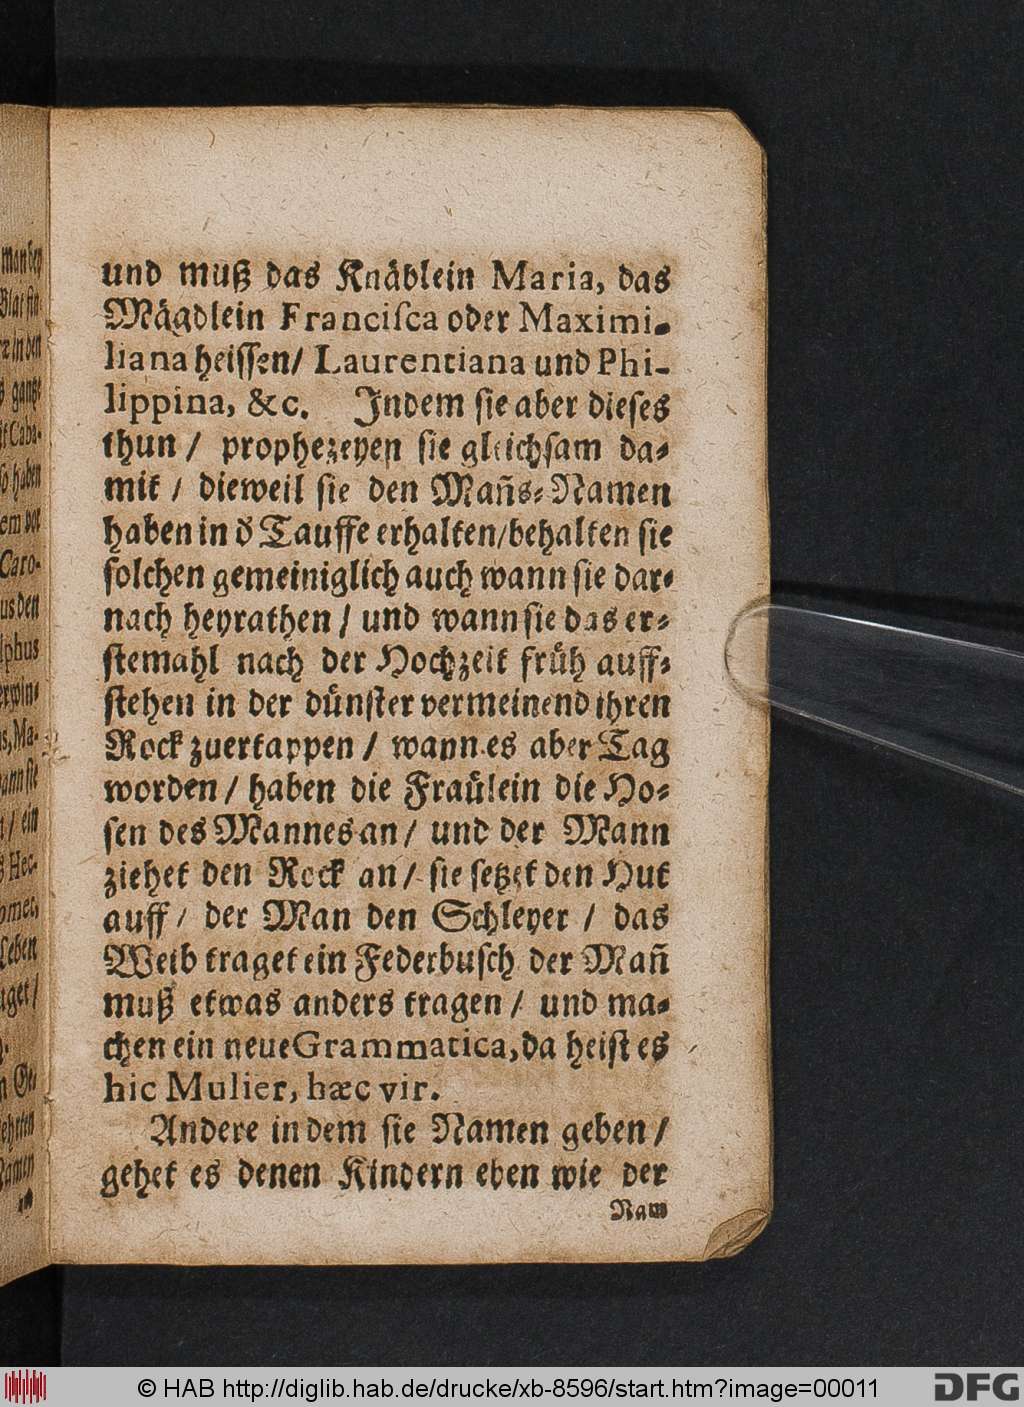 und muß das Knäblein Maria, das
Mägdlein Franciſca oder Maximi-
liana heiſſen/ Laurentiana und Phi-
lippina, &c. Indem ſie aber dieſes
thun / prophezeyen ſie gleichſam da-
mit / dieweil ſie den Mañs-Namen
haben in d̓ Tauffe erhalten/behalten ſie
ſolchen gemeiniglich auch wann ſie dar-
nach heyrathen / und wann ſie das er-
ſtemahl nach der Hochzeit früh auff-
ſtehen in der dünſter vermeinend ihren
Rock zuertappen / wann es aber Tag
worden / haben die Fräulein die Ho-
ſen des Mannes an / und der Mann
ziehet den Rock an / ſie ſetzet den Hut
auff / der Man den Schleyer / das
Weib traget ein Federbuſch der Mañ
muß etwas anders tragen / und ma-
chen ein neue Grammatica, da heiſt es
hic Mulier, hæc vir.
Andere in dem ſie Namen geben /
gehet es denen Kindern eben wie der
Nam
© HAB http://diglib.hab.de/drucke/xb-8596/start.htm?image=00011
DFG